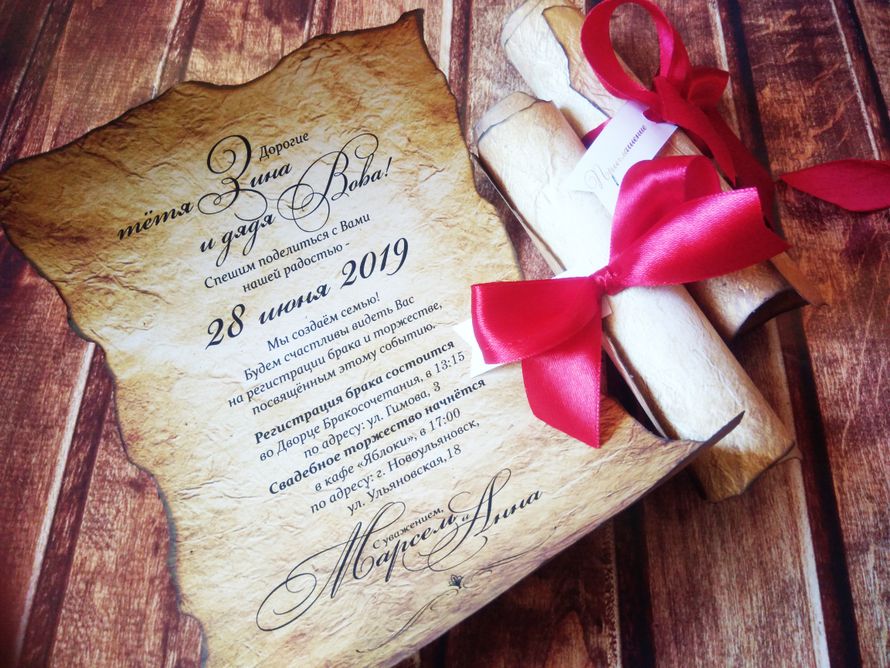 Дорогие
тётя Зина
и дядя Вова!
Спешим поделиться с Вами
нашей радостью -
28 июня 2019
Мы создаём семью!
Будем счастливы видеть Вас
на регистрации брака и торжестве,
посвящённым этому событию.
Регистрация брака состоится
во Дворце Бракосочетания, в 13:15
по адресу: ул. Гимова, 3
Свадебное торжество начнётся
в кафе «Яблоки», в 17:00
по адресу: г. Новоульяновск,
ул. Ульяновская,18
С уважением,
Марсем и Анна
Приглашение